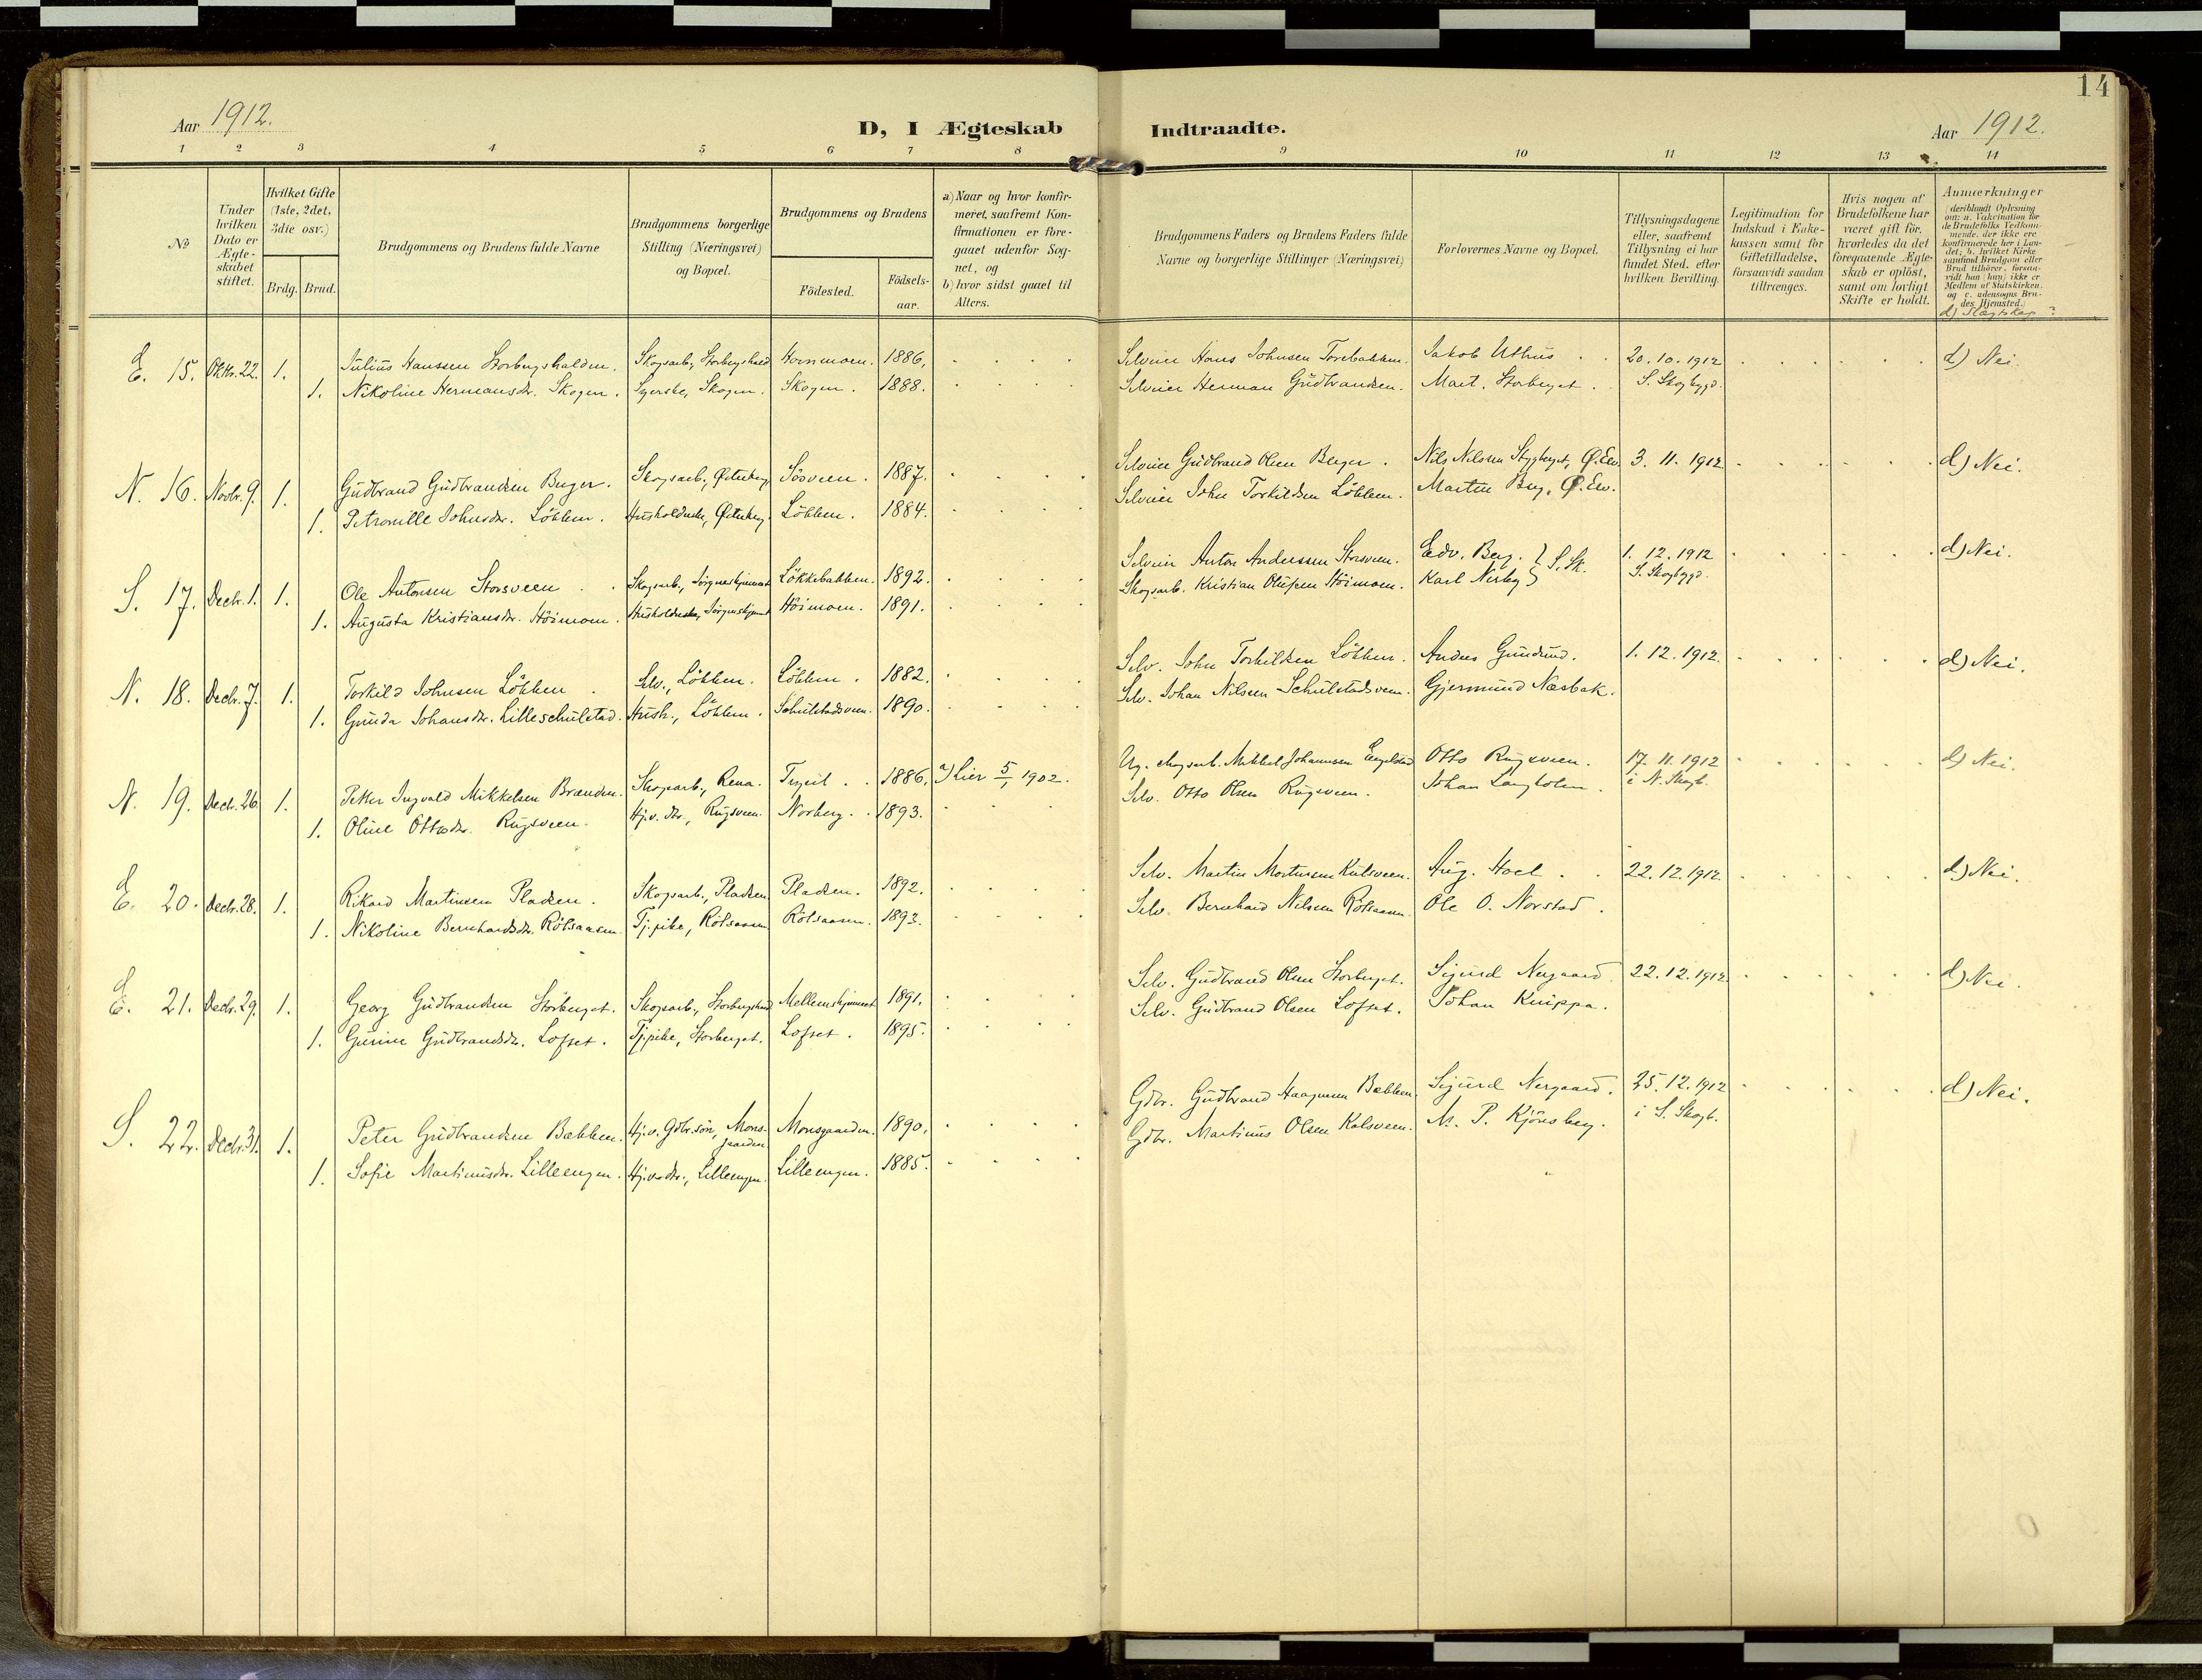 14
Aar 1912.
D, I Ægteskab Indtraadte.
Aar 1912.
1 2 3 4 5 6 7 8 9 10 11 12 13 14
No
Under hvilken Dato er Ægteskabet stiftet.
Hvilket Gifte (1ste, 2det, 3die osv.)
Brdg. Brud.
Brudgommens og Brudens fulde Navne
Brudgommens borgerlige Stilling (Næringsvei) og Bopæl.
Brudgommens og Brudens
Födested.
Födselsaar.
a) Naar og hvor konfirmeret, saafremt Konfirmationen er foregaaet udenfor Sognet, og
b) hvor sidst gaaet til Alters.
Brudgommens Faders og Brudens Faders fulde Navne og borgerlige Stillinger (Næringsvei)
Forlovernes Navne og Bopæl.
Tillysningsdagene eller, saafremt Tillysning ei har fundet Sted, efter hvilken Bevilling.
Legitimation for Indskud i Enkekassen samt for Giftetilladelse, forsaavidt saadan tiltrænges.
Hvis nogen af Brudefolkene har været gift för, hvorledes da det foregaaende Ægteskab er oplöst, samt om lovligt Skifte er holdt.
Anmerkninger (deriblandt Oplysning om: a. Vakcination for de Brudefolks Vedkommende, der ikke ere konfirmerede her i Landet; b. hvilket Kirkesamfund Brudgom eller Brud tilhörer, forsaavidt han (hun) ikke er Medlem af Statskirken, og c. udensogns Brudes Hjemsted.)
d) Slægtskap?
E. 15. Oktbr. 22. 1. Julius Hanssen Storbergshalden. Skogsarb., Storbergshald Hoimoen. 1886. Selveier Hans Johnsen Torebakken. Jakob Uthus 20.10.1912 d) Nei.
1. Nikoline Hermansdr. Skogen. Syerske, Skogen. Skogen. 1888. Selveier Herman Gudbrandsen. Mart. Storberget. S. Skogbygd.
N. 16. Novbr. 9. 1. Gudbrand Gudbrandsen Berger. Skogsarb., Österberg Sösveen. 1887. Selveier Gudbrand Olsen Berger. Nils Nilssen Stygberget, Ø. Elv. 3.11.1912 d) Nei.
1. Petronille Johnsdr. Lökken. Husholderske, Österberg. Lökken. 1884. Selveier John Torkildsen Lökken. Martin Berg, Ø. Elv.
S. 17. Decbr. 1. 1. Ole Antonsen Storsveen. Skogsarb., Lökkebakken. 1892. Selveier Anton Anderssen Storsveen. Edv. Berg. } S. Sk. 1.12.1912 d) Nei.
1. Augusta Kristiansdr. Höimoen. Husholderske, Höimoen. 1891. Skogsarb. Kristian Olufsen Höimoen. Karl Nerby S. Skogbygd.
N. 18. Decbr. 7. 1. Torkild Johnsen Lökken. Selv., Lökken. Lökken. 1882. Selv. John Torkildsen Lökken. Anders Grundsund. 1.12.1912. d) Nei.
1. Gunda Johansdr. Lilleschulstad. Hush., Lökken. Schulstadsveen. 1890. Selv. Johan Nilssen Schulstadsveen. Gjermund Næsbak.
N. 19. Decbr. 26. 1. Petter Ingvald Mikkelsen Brænden. Skogsarb., Rena. Trysil. 1886. a) Lier 5/1 1902. Ug. skogsarb. Mikkel Johannessen Engelstad Otto Rugsveen. 17.11.1912 d) Nei.
1. Oline Ottosdr. Rugsveen. Hj.v. dtr., Rugsveen. Norberg. 1893. Selv. Otto Olsen Rugsveen. Johan Langholm. i N. Skogb.
E. 20. Decbr. 28. 1. Rikard Martinsen Pladsen. Skogsarb., Pladsen. Pladsen. 1892. Selv. Martin Mortensen Kulsveen. Aug. Hoel. 22.12.1912 d) Nei.
1. Nikoline Bernhardsdr. Rötsaasen. Tj.pike, Rötsaasen Rötsaasen. 1893. Selv. Bernhard Nilsen Rötsaasen. Ole O. Norstad.
E. 21. Decbr. 29. 1. Georg Gudbrandsen Storberget. Skogsarb., Storbergshald Mellemskjæmæt 1891. Selv. Gudbrand Olsen Storberget. Sigurd Nergaard. 22.12.1912. d) Nei.
1. Gunine Gudbrandsdr. Lofset. Tj.pike, Storberget. Lofset. 1895. Selv. Gudbrand Olsen Lofset. Johan Knippa.
S. 22. Decbr. 31. 1. Peter Gudbrandsen Bækken. Hj.v. Gdbr.sön, Monsgaarden Monsgaarden. 1890. Gdbr. Gudbrand Haagensen Bækken. Sigurd Nergaard. 25.12.1912 d) Nei.
1. Sofie Martinusdr. Lilleengen. Hj.v. dtr., Lilleengen. Lilleengen. 1885. Gdbr. Martinus Olsen Kolsveen. M. P. Kjönsberg. i S. Skogb.